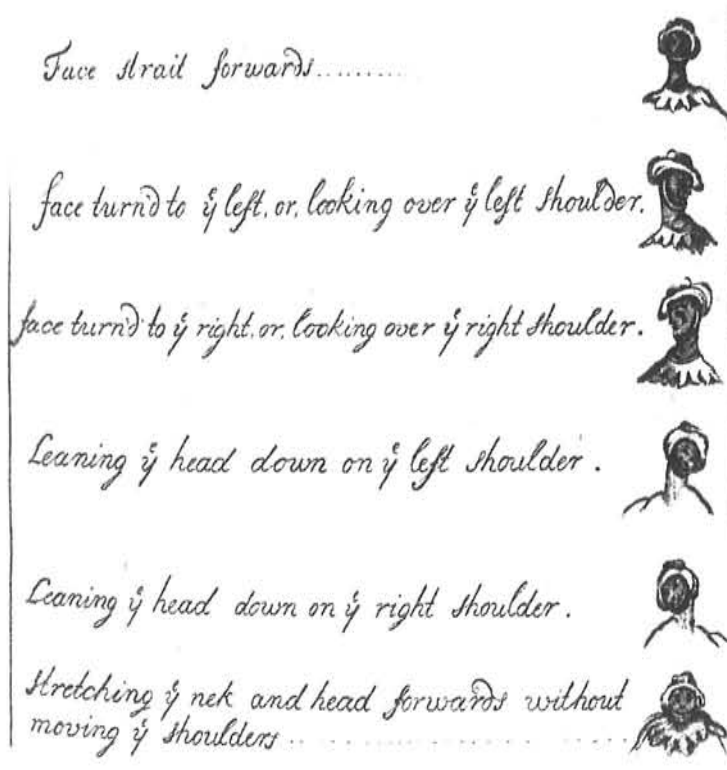 Face strait forwards.........
face turn'd to yͤ left, or, looking over yͤ left shoulder.
face turn'd to yͤ right, or, looking over yͤ right shoulder.
Leaning yͤ head down on yͤ left shoulder.
Leaning yͤ head down on yͤ right shoulder.
stretching yͤ nek and head forwards without
moving yͤ shoulders ....................